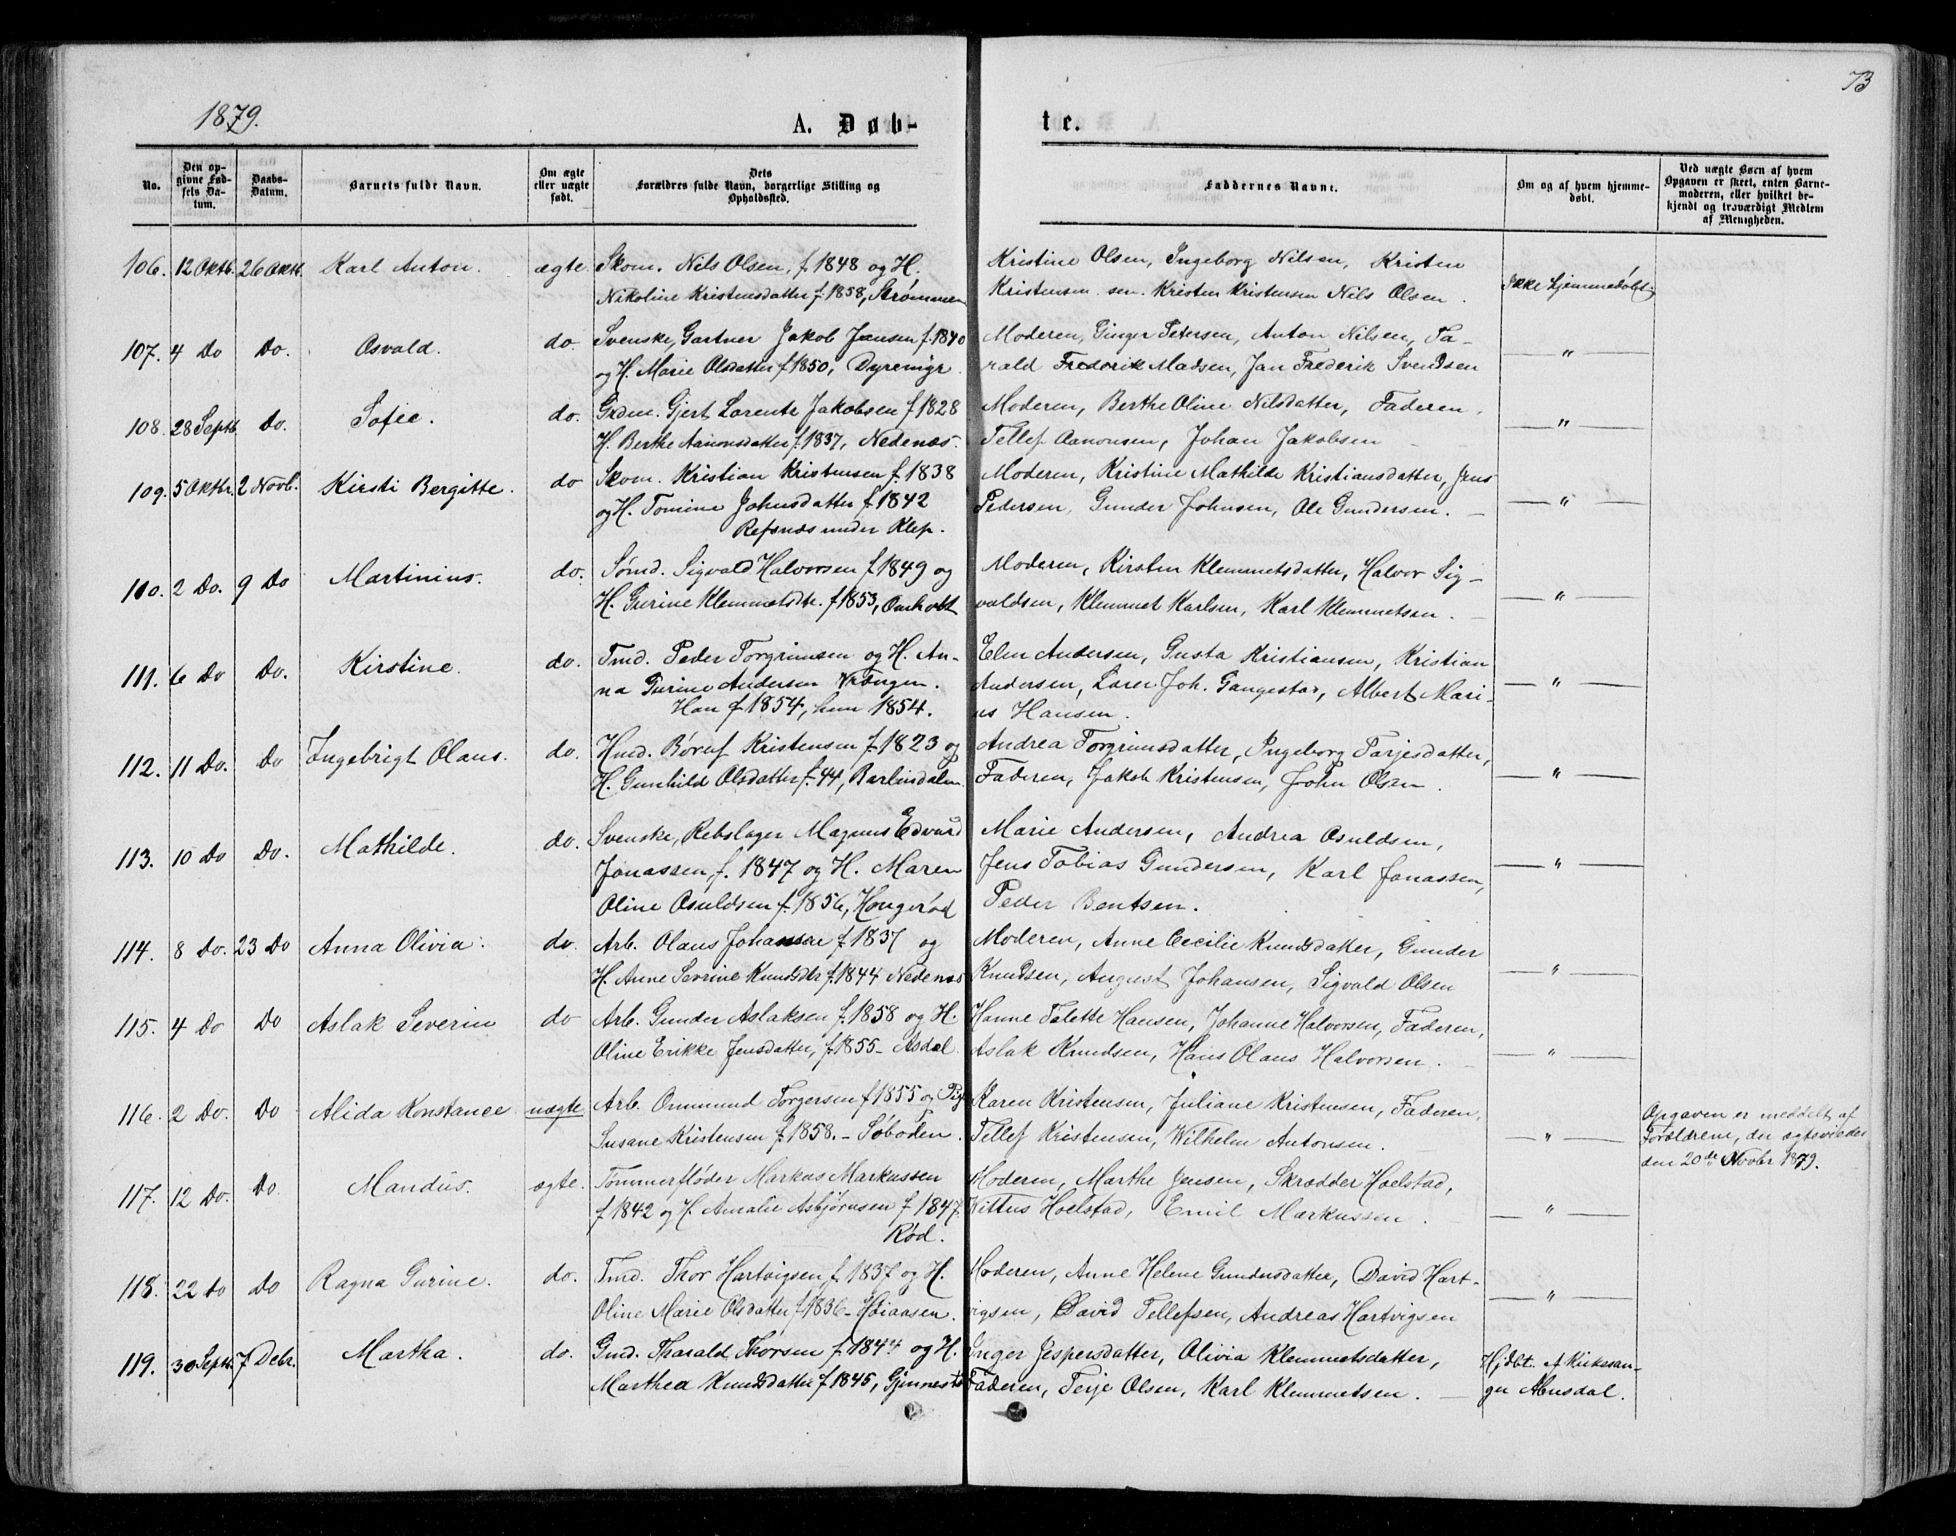 73
1879.
A. Døb-
te.
No.
Den op-
givne Fød-
sels Da-
tum.
Daabs-
Datum.
Barnets fulde Navn.
Om ægte
eller uægte
født.
Dets
Forældres fulde Navn, borgerlige Stilling og
Opholdssted.
Faddernes Navne.
Om og af hvem hjemme-
døbt.
Ved uægte Børn af hvem
Opgaven er skeet, enten Barne-
moderen, eller hvilket be-
kjendt og troværdigt Medlem
af Menigheden.
106. 12 Oktb. 26 Oktb. Karl Anton. ægte. Skom. Nils Olsen, f. 1848 og H. Kristine Olsen, Ingeborg Nilsen, Kristen
Nikoline Kristensdatter f. 1858, Strømmen Kristensen sen. Kristen Kristensen Nils Olsen. Ikke hjemmedøbt
107. 4 Do Do. Osvald. do. Svenske, Gartner Jakob Jansen f. 1840 Moderen, Ginger Petersen, Anton Nilsen, Ta-
og H. Marie Olsdatter f. 1850, Dyremyr. rald Frederik Madsen, Jan Frederik Svendsen — " —
108. 28 Septb. Do. Sofie. do. Grdm. Gjert Lorents Jakobsen f. 1828 Moderen, Berthe Oline Nilsdatter, Faderen,
H. Berthe Aanonsdatter f. 1837, Nedenæs. Tellef Aanonsen, Johan Jakobsen — " —
109. 5 Oktbr. 2 Novb. Kirsti Bergitte. do Skom. Kristian Kristensen f. 1838 Moderen, Kristine Mathilde Kristiansdatter, Jens
og H. Tomine Johnsdatter f. 1842 Pedersen, Gunder Johnsen, Ole Gundersen. — " —
Refsnæs under Klep.
110. 2 Do. 9 Do Martinius. do. Sømd. Sigvald Halvorsen f. 1849 og Moderen, Kirsten Klemmetsdatter, Halvor Sig-
H. Gurine Klemmetsdtr. f. 1853, Omholt valdsen, Klemmet Karlsen, Karl Klemmetsen. — " —
111. 6 Do Do. Kirstine. do. Tmd. Peder Torgrimsen og H. An- Elen Andersen, Gusta Kristiansen, Kristian
na Gurine Andersen Vrængen. Andersen, Lorer Joh. Gangestad, Albert Mari- — " —
Han f. 1854, hun 1854. us Hansen.
112. 11 Do. Do Ingebrigt Olaus. do. Hmd. Børuf Kristensen f. 1823 og Andrea Torgrimsdatter, Ingeborg Tarjesdatter,
H. Gunhild Olsdatter f. 44, Barlindalen Faderen, Jakob Kristensen, John Olsen. — " —
113. 10 Do Do. Mathilde. do. Svenske, Rebslager Magnus Edvard Marie Andersen, Andrea Osuldsen,
Jonassen f. 1847 og H. Maren Jens Tobias Gundersen, Karl Jonassen, — " —
Oline Osuldsen f. 1856, Hougerød Peder Bentsen.
114. 8 Do. 23 Do Anna Olivia. do. Arb. Olaus Johansen f. 1837 og Moderen, Anne Cecilie Knudsdatter, Gunder
H. Anne Serine Knudsdtr f. 1844 Nedenæs Knudsen, August Johansen, Sigvald Olsen — " —
115. 4 Do Do Aslak Severin do Arb. Gunder Aslaksen f. 1858 og H. Hanne Talette Hansen, Johanne Halvorsen, Faderen,
Oline Erikke Jensdatter, f. 1855 - Asdal. Aslak Knudsen, Hans Olaus Halvorsen. — " —
116. 2 Do. Do Alida Konstance uægte Arb. Ommund Torgersen f. 1855 og Pig Karen Kristensen, Juliane Kristensen, Faderen,
Susane Kristensen f. 1858. - Søboden. Tellef Kristensen, Wilhelm Antonsen. — " —
Opgaven er meddelt af
Forældrene, der ægtevviedes
den 20de Novbr 1879.
117. 12 Do. Do Mandus. ægte. Tømmerfløder Markus Markussen Moderen, Marthe Jensen, Skrædder Hoelstad,
f. 1842 og H. Amalie Asbjørnsen f. 1847. Vittus Hoelstad, Emil Markussen. — " —
Rød.
118. 22 Do Do Ragna Gurine. do. Tmd. Thor Hartvigsen f. 1837 og H. Moderen, Anne Helene Gundersdatter, David Hart-
Oline Marie Olsdatter f. 1836 - Høiaasen. vigsen, David Tellefsen, Andreas Hartvigsen — " —
119. 30 Septb. 7 Debr. Martha. do. Gmd. Tharald Thorsen f. 1844 og H. Inger Jespersdatter, Olivia Klemmetsdatter,
Marthea Knudsdatter f. 1845, Gjennestø Faderen, Terje Olsen, Karl Klemmetsen. Hjdbt. af Kirkesan-
ger Abusdal.